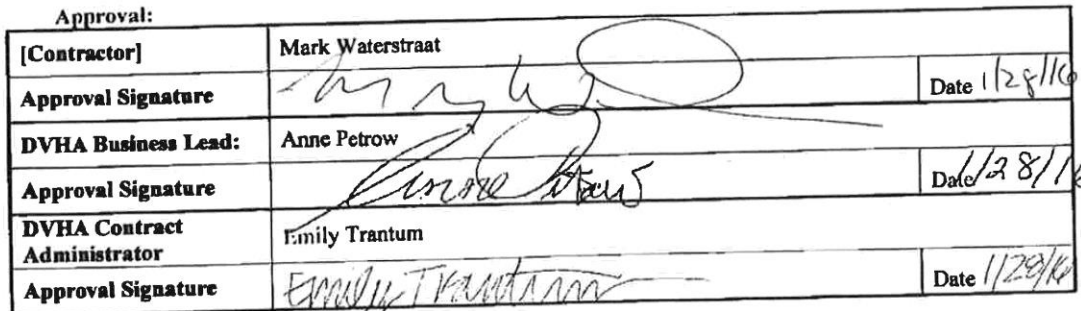 Approval:
[Contractor] Mark Waterstraat
Approval Signature Date 1/28/16
DVHA Business Lead: Anne Petrow
Approval Signature Anne Petrow Date 1/28/16
DVHA Contract
Administrator Emily Trantum
Approval Signature Emily Trantum Date 1/28/16